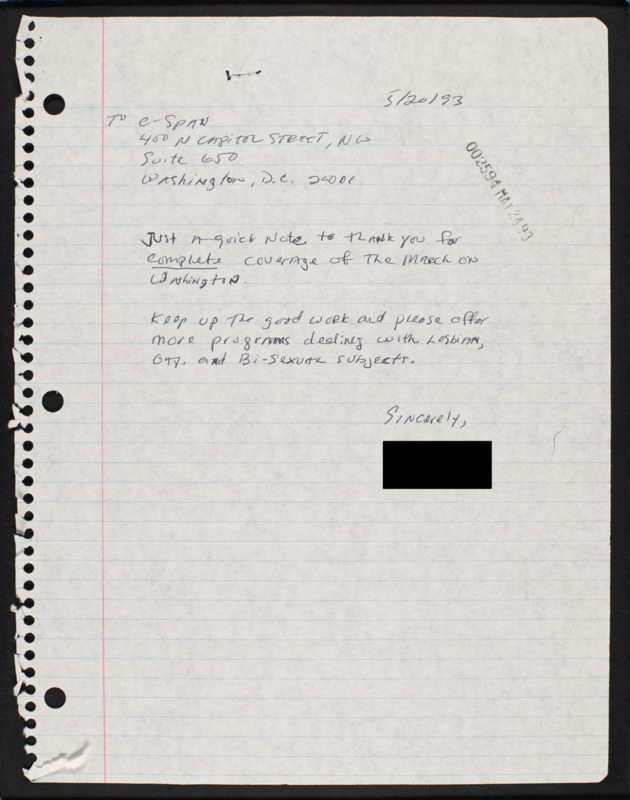 5/20/93
TO C-SPAN
400 N CAPITOL STREET, NW
Suite 650
Washington, D.C. 20001
002594 MAY 24 93
Just a quick note, to thank you for
complete coverage of the March on
Washington.
Keep up the good work and please offer
more programs dealing with Lesbian,
Gay, and Bi-Sexual subjects.
Sincerely,